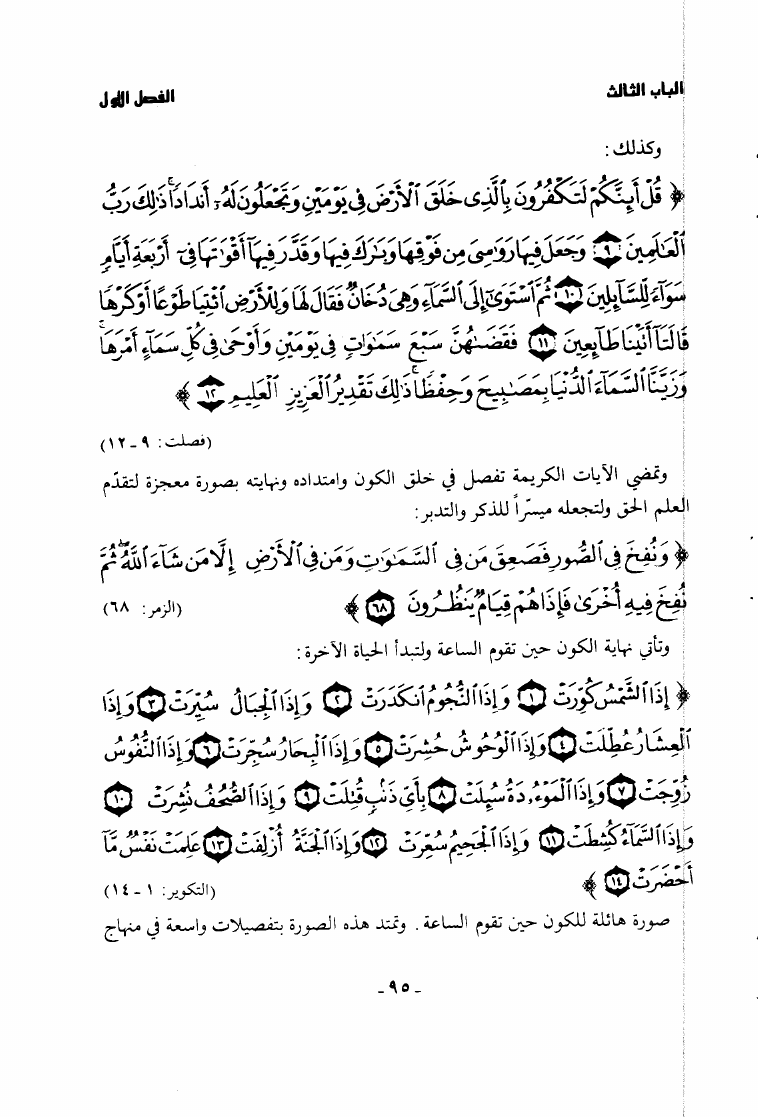 الباب الثالث
الفصل الأول
وكذلك :
﴿ قُلْ أَئِنَّكُمْ لَتَكْفُرُونَ بِالَّذِى خَلَقَ الْأَرْضَ فِى يَوْمَيْنِ وَتَجْعَلُونَ لَهُۥٓ أَندَادًا ۚ ذَٰلِكَ رَبُّ
الْعَالَمِينَ ۝٩ وَجَعَلَ فِيهَا رَوَٰسِىَ مِن فَوْقِهَا وَبَٰرَكَ فِيهَا وَقَدَّرَ فِيهَآ أَقْوَٰتَهَا فِىٓ أَرْبَعَةِ أَيَّامٍ
سَوَآءً لِّلسَّآئِلِينَ ۝١٠ ثُمَّ اسْتَوَىٰٓ إِلَى السَّمَآءِ وَهِىَ دُخَانٌ فَقَالَ لَهَا وَلِلْأَرْضِ ائْتِيَا طَوْعًا أَوْ كَرْهًا
قَالَتَآ أَتَيْنَا طَآئِعِينَ ۝١١ فَقَضَىٰهُنَّ سَبْعَ سَمَٰوَاتٍ فِى يَوْمَيْنِ وَأَوْحَىٰ فِى كُلِّ سَمَآءٍ أَمْرَهَا ۚ
وَزَيَّنَّا السَّمَآءَ الدُّنْيَا بِمَصَٰبِيحَ وَحِفْظًا ۚ ذَٰلِكَ تَقْدِيرُ الْعَزِيزِ الْعَلِيمِ ۝١٢ ﴾
(فصلت : ٩ ـ ١٢)
وتمضي الآيات الكريمة تفصل في خلق الكون وامتداده ونهايته بصورة معجزة لتقدّم
العلم الحق ولتجعله ميسّراً للذكر والتدبر :
﴿ وَنُفِخَ فِى الصُّورِ فَصَعِقَ مَن فِى السَّمَٰوَٰتِ وَمَن فِى الْأَرْضِ إِلَّا مَن شَآءَ اللَّهُ ۖ ثُمَّ
نُفِخَ فِيهِ أُخْرَىٰ فَإِذَا هُمْ قِيَامٌ يَنظُرُونَ ۝٦٨ ﴾
(الزمر: ٦٨)
وتأتي نهاية الكون حين تقوم الساعة ولتبدأ الحياة الآخرة :
﴿ إِذَا الشَّمْسُ كُوِّرَتْ ۝١ وَإِذَا النُّجُومُ انكَدَرَتْ ۝٢ وَإِذَا الْجِبَالُ سُيِّرَتْ ۝٣ وَإِذَا
الْعِشَارُ عُطِّلَتْ ۝٤ وَإِذَا الْوُحُوشُ حُشِرَتْ ۝٥ وَإِذَا الْبِحَارُ سُجِّرَتْ ۝٦ وَإِذَا النُّفُوسُ
زُوِّجَتْ ۝٧ وَإِذَا الْمَوْءُۥدَةُ سُئِلَتْ ۝٨ بِأَىِّ ذَنۢبٍ قُتِلَتْ ۝٩ وَإِذَا الصُّحُفُ نُشِرَتْ ۝١٠
وَإِذَا السَّمَآءُ كُشِطَتْ ۝١١ وَإِذَا الْجَحِيمُ سُعِّرَتْ ۝١٢ وَإِذَا الْجَنَّةُ أُزْلِفَتْ ۝١٣ عَلِمَتْ نَفْسٌ مَّآ
أَحْضَرَتْ ۝١٤ ﴾
(التكوير: ١ ـ ١٤)
صورة هائلة للكون حين تقوم الساعة . وتمتد هذه الصورة بتفصيلات واسعة في منهاج
ـ ٩٥ ـ